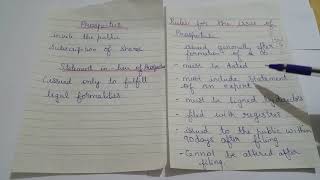 Prospectus
invite the public
subscription of shares
Statement in lieu of Prospectus
issued only to fulfill
legal formalities
Rules for the issue of
Prospectus
- issued generally after
formation of a
- must be dated
- must include statement
of an expert
- must be signed by directors
- filed with registrar
- issued to the public within
90 days after filing
- Cannot be altered after
filing.